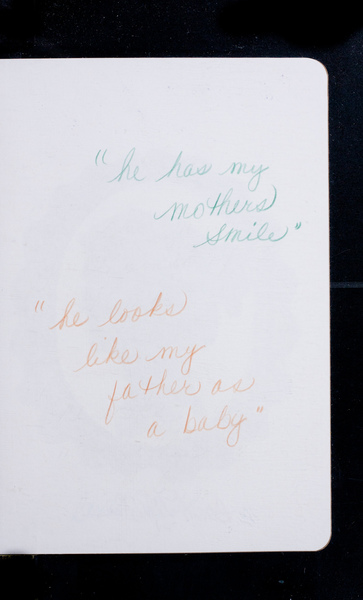 "he has my
mothers
smile"
"he looks
like my
father as
a baby"